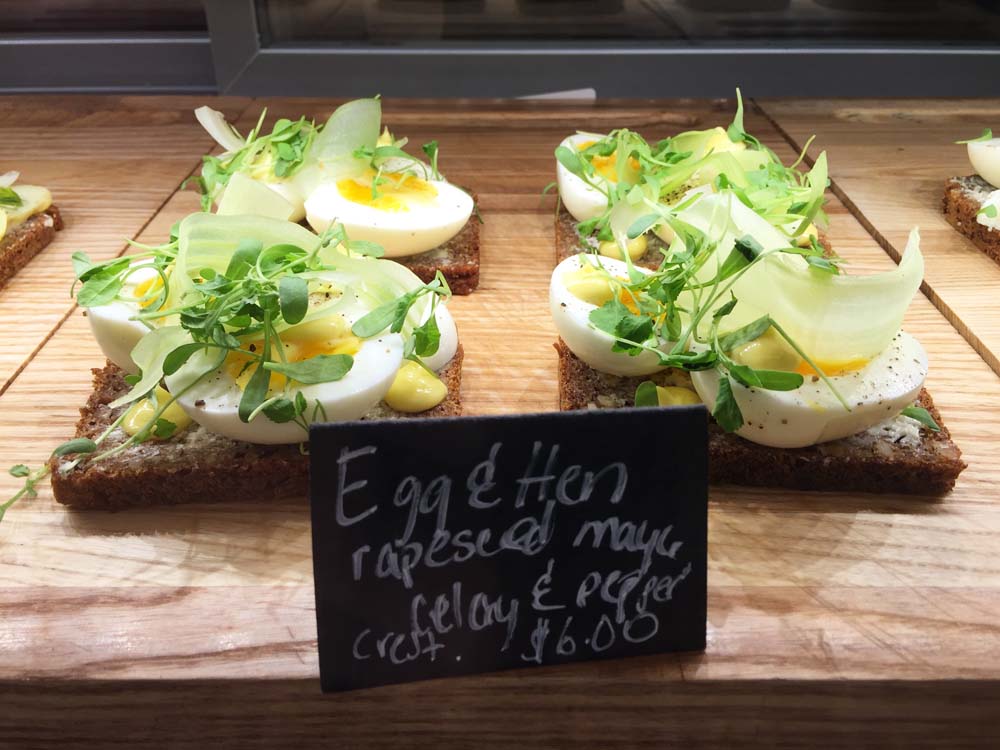 Egg & Hen
rapeseed mayo
Celery & pepper
crest. $6.00